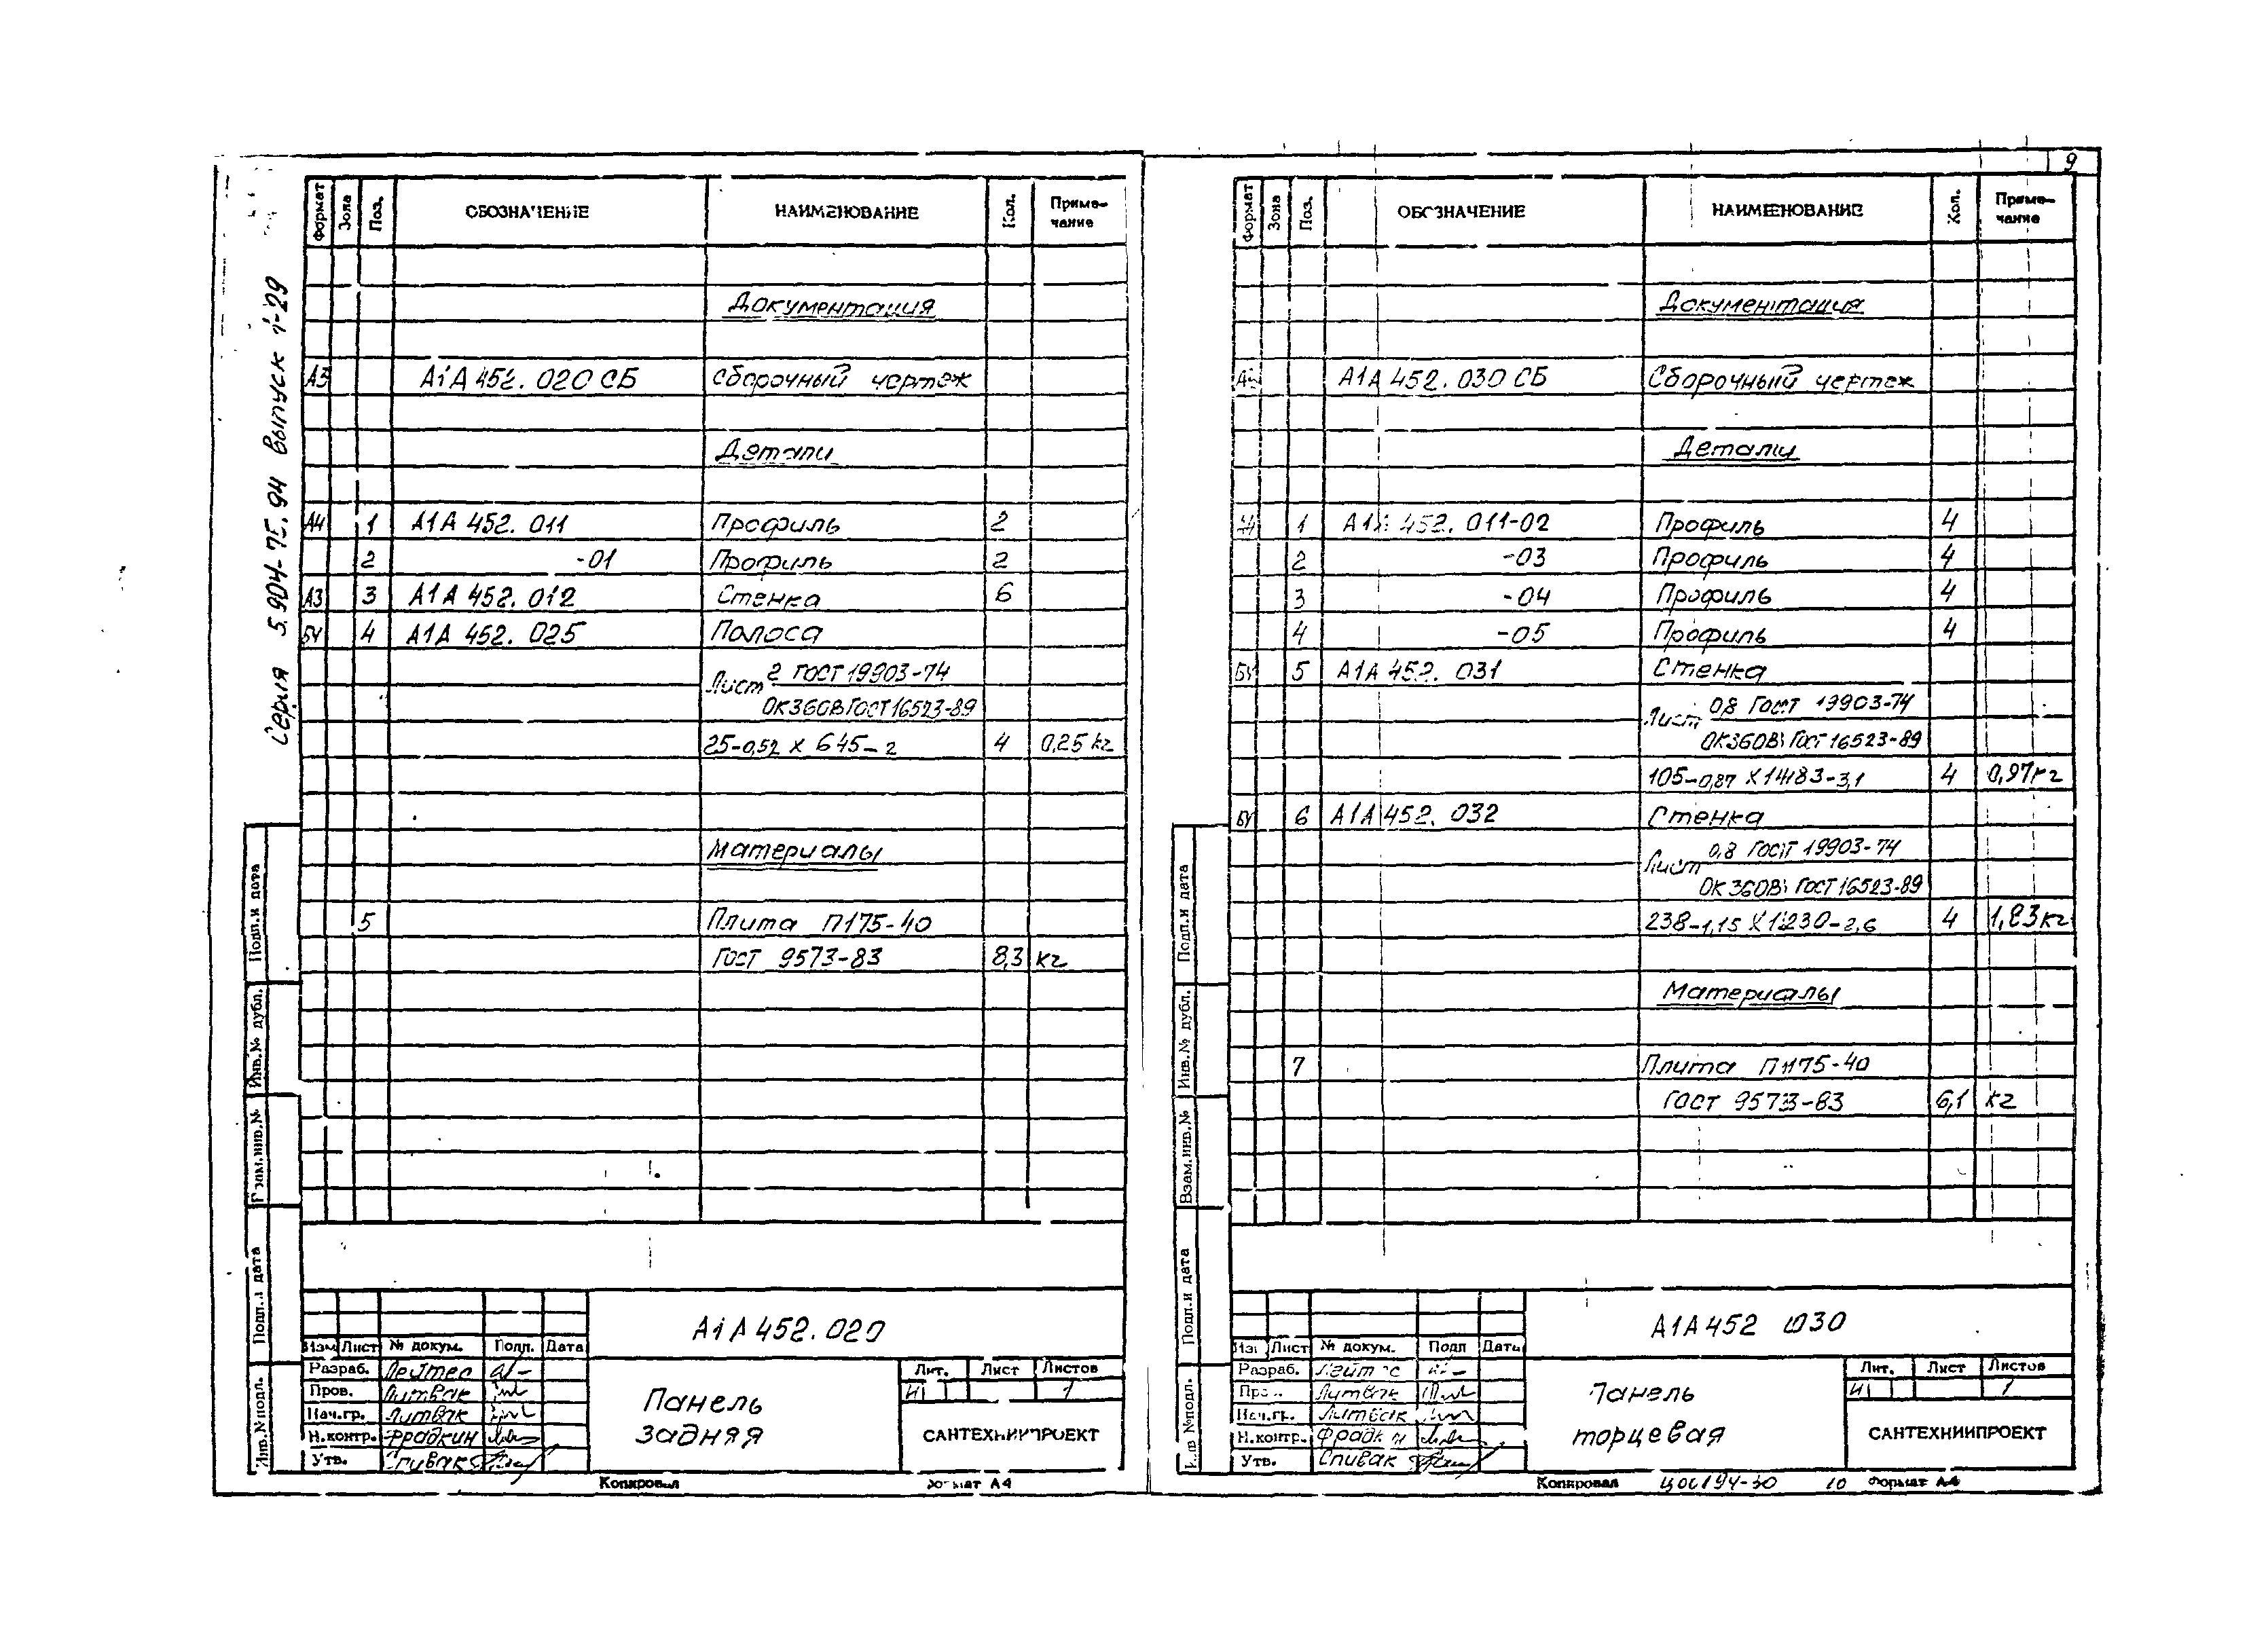 Серия 5.904-75.94 выпуск 1-29
Формат Зона Поз. ОБОЗНАЧЕНИЕ НАИМЕНОВАНИЕ Кол. Приме-
чание
Документация
А3 А1А 452.020 СБ Сборочный чертеж
Детали
А4 1 А1А 452.011 Профиль 2
2 -01 Профиль 2
А3 3 А1А 452.012 Стенка 6
БЧ 4 А1А 452.025 Полоса
Лист 2 ГОСТ 19903-74
ОК360В ГОСТ 16523-89
25-0,52 х 645-2 4 0,25 кг
Материалы
5 Плита П175-40
ГОСТ 9573-83 8,3 кг
Подп.и дата
Инв.№ дубл.
Взам.инв.№
Подп.и дата
Инв.№ подл.
А1А 452.020
Изм Лист № докум. Подп. Дата
Разраб. Лейтес
Пров. Литвак
Нач.гр. Литвак
Н.контр. Фрадкин
Утв. Спивак
Панель
задняя
Лит. Лист Листов
И 1
САНТЕХНИИПРОЕКТ
Копировал Формат А4
9
Формат Зона Поз. ОБОЗНАЧЕНИЕ НАИМЕНОВАНИЕ Кол. Приме-
чание
Документация
А1А 452.030 СБ Сборочный чертеж
Детали
А4 1 А1А 452.011-02 Профиль 4
2 -03 Профиль 4
3 -04 Профиль 4
4 -05 Профиль 4
БЧ 5 А1А 452.031 Стенка
Лист 0,8 ГОСТ 19903-74
ОК360В ГОСТ 16523-89
105-0,87 х 1483-3,1 4 0,97кг
БЧ 6 А1А 452.032 Стенка
Лист 0,8 ГОСТ 19903-74
ОК360В ГОСТ 16523-89
238-1,15 х 1230-2,6 4 1,83кг
Материалы
7 Плита П175-40
ГОСТ 9573-83 6,1 кг
Подп.и дата
Инв.№ дубл.
Взам.инв.№
Подп.и дата
Инв №подл.
А1А 452 030
Изм Лист № докум. Подп Дата
Разраб. Лейтес
Пров. Литвак
Нач.гр. Литвак
Н.контр. Фрадкин
Утв. Спивак
Панель
торцевая
Лит. Лист Листов
И 1
САНТЕХНИИПРОЕКТ
Копировал Ц00194-30 10 Формат А4